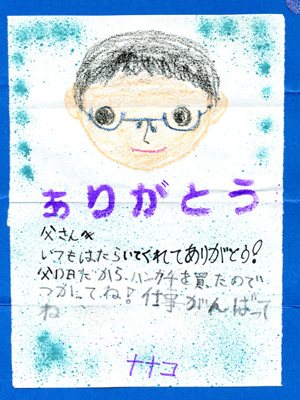 ありがとう
父さんへ
いつもはたらいてくれてありがとう!
父の日だから、ハンカチを買ったので
つかってね!仕事がんばって
ね
ナナコ